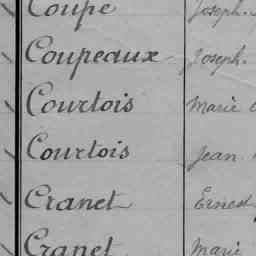 Coupe Joseph.
Coupeaux Joseph.
Courtois Marie
Courtois Jean
Cranet Ernest
Cranet Marie